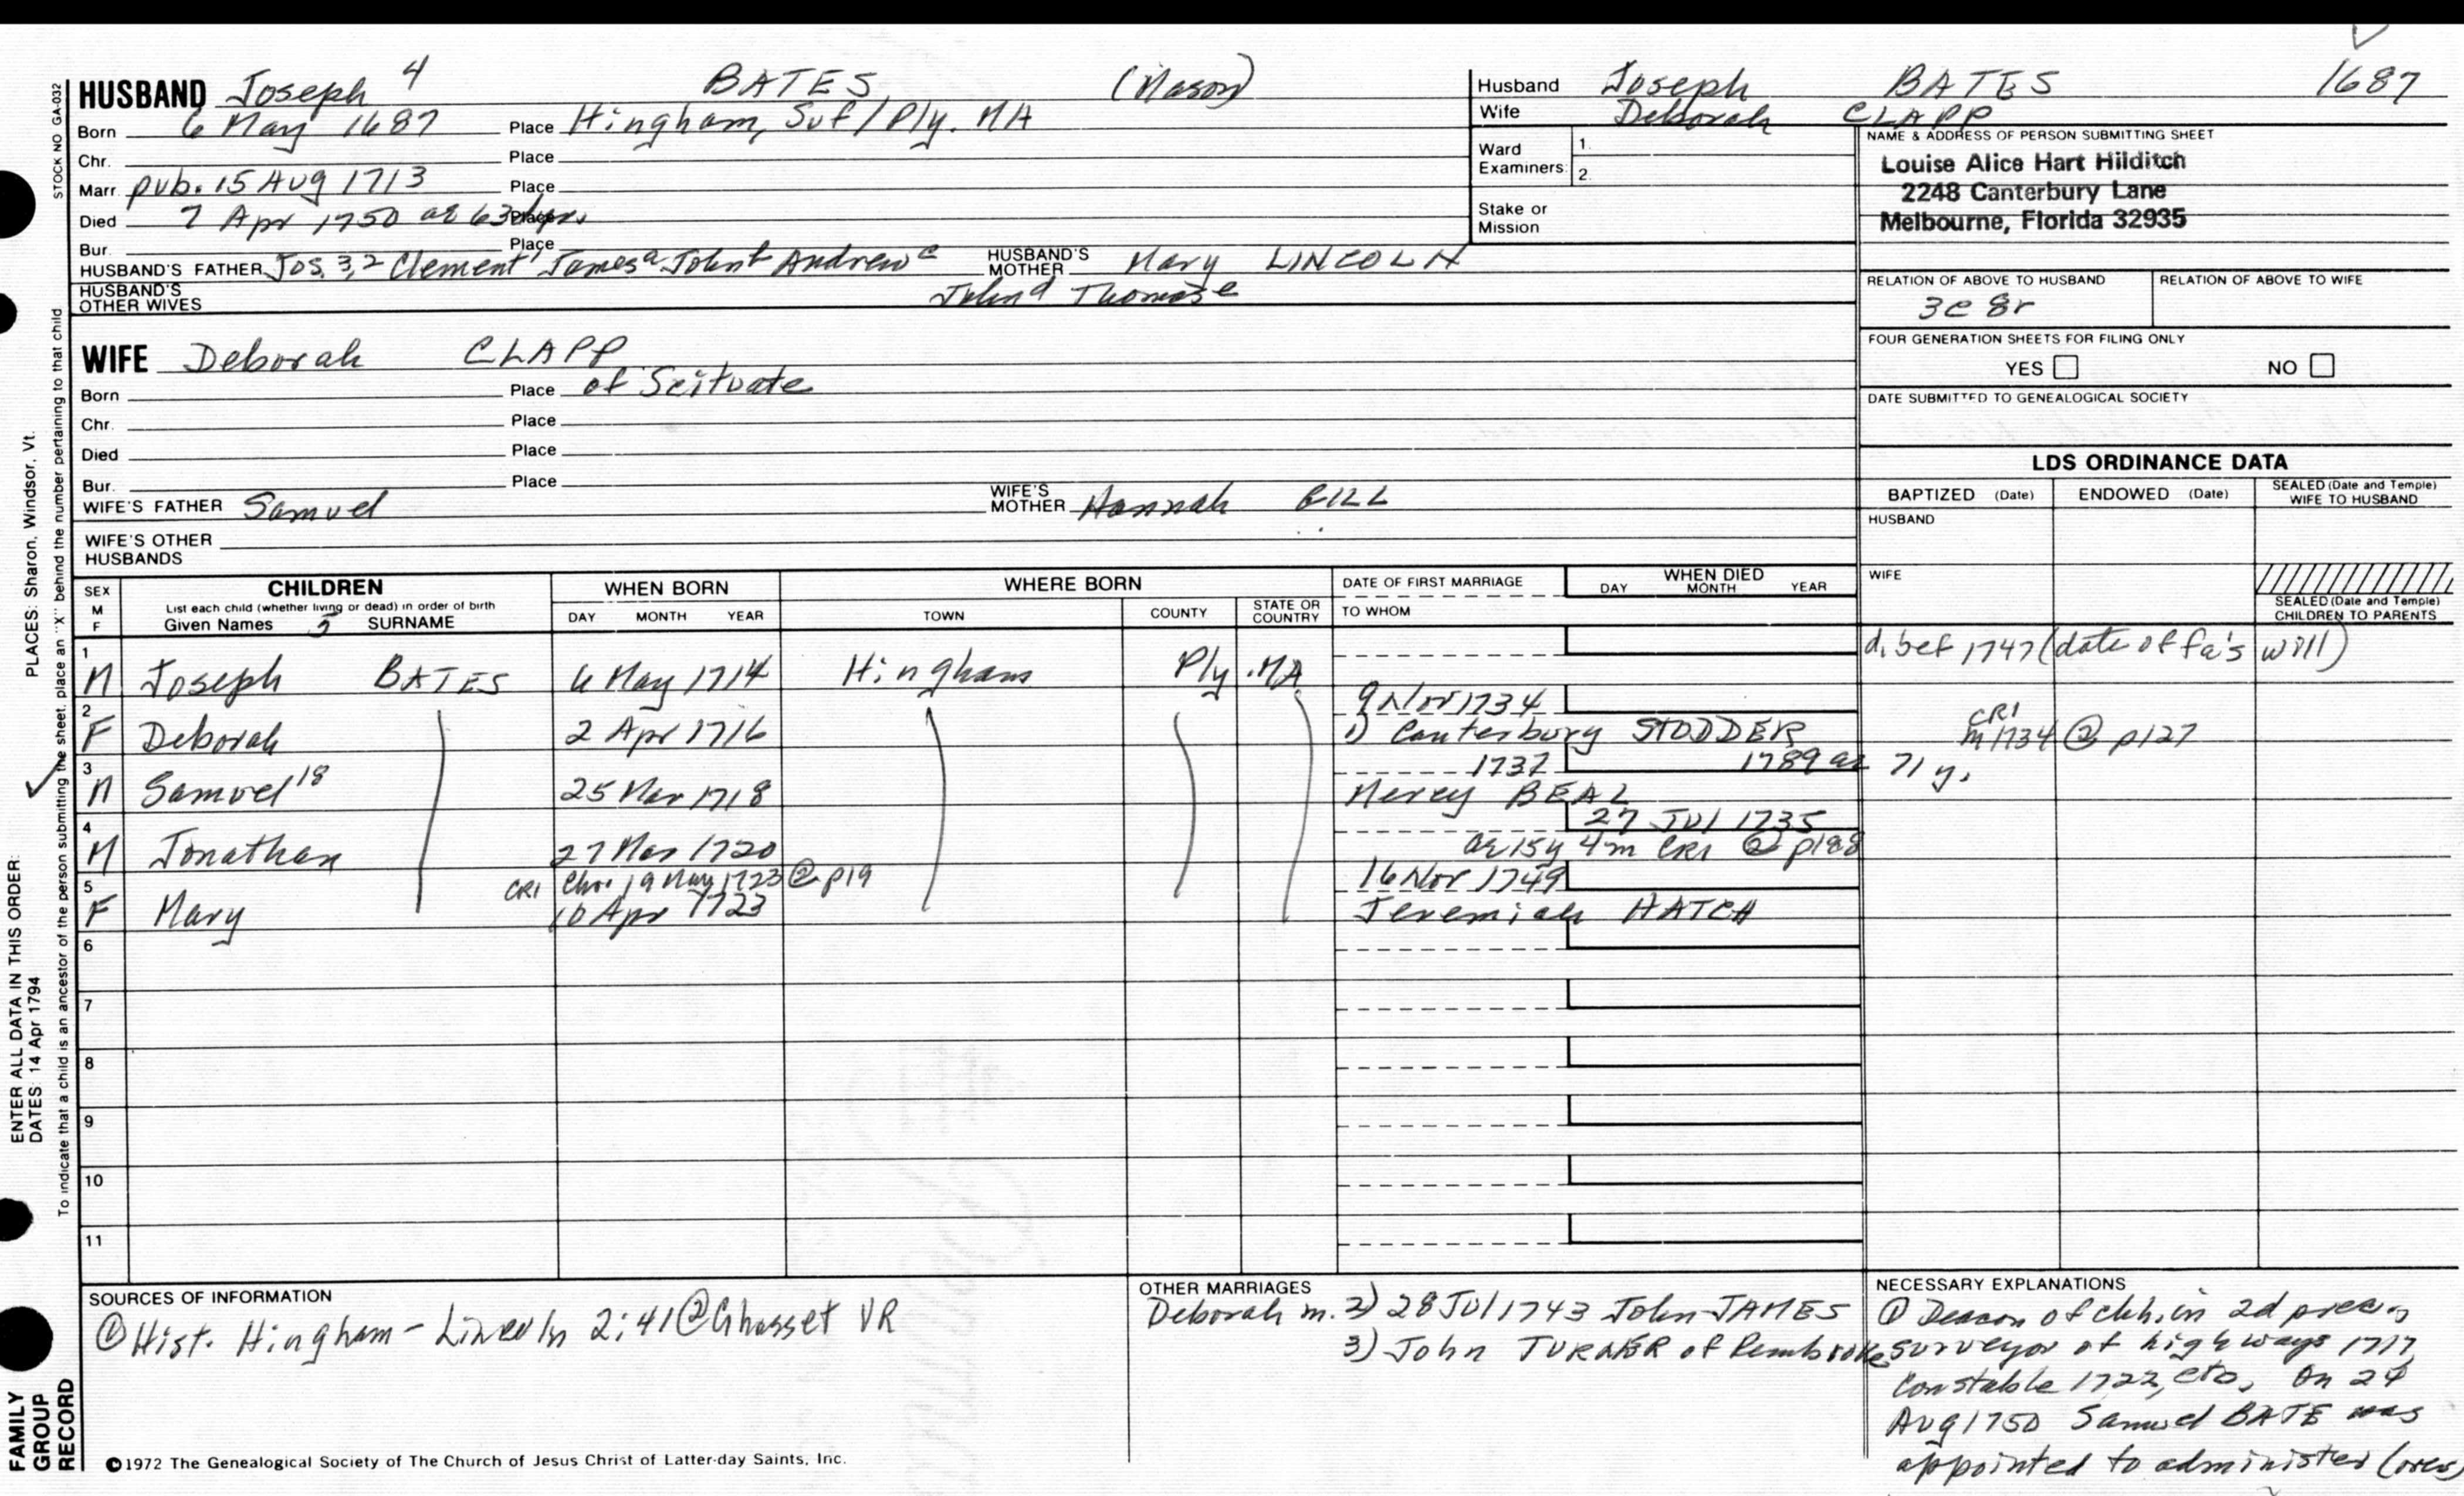 HUSBAND Joseph 4 BATES (Mason)
Born 6 May 1687 Place Hingham, Suf/Ply. MA
Chr. Place
Marr. pub. 15 Aug 1713 Place
Died 7 Apr 1750 ae 63 yrs. Place
Bur. Place
HUSBAND'S FATHER Jos. 3,2 Clement 1 James a John b Andrew c HUSBAND'S MOTHER Mary LINCOLN
HUSBAND'S OTHER WIVES John d Thomas e
Husband Joseph BATES 1687
Wife Deborah CLAPP
Ward Examiners: 1.
2.
Stake or Mission
NAME & ADDRESS OF PERSON SUBMITTING SHEET
Louise Alice Hart Hilditch
2248 Canterbury Lane
Melbourne, Florida 32935
RELATION OF ABOVE TO HUSBAND RELATION OF ABOVE TO WIFE
3c 8r
FOUR GENERATION SHEETS FOR FILING ONLY
YES NO
DATE SUBMITTED TO GENEALOGICAL SOCIETY
WIFE Deborah CLAPP
Born Place of Scituate
Chr. Place
Died Place
Bur. Place
WIFE'S FATHER Samuel WIFE'S MOTHER Hannah GILL
WIFE'S OTHER HUSBANDS
LDS ORDINANCE DATA
BAPTIZED (Date) ENDOWED (Date) SEALED (Date and Temple) WIFE TO HUSBAND
HUSBAND
WIFE
SEALED (Date and Temple) CHILDREN TO PARENTS
SEX M F CHILDREN WHEN BORN WHERE BORN DATE OF FIRST MARRIAGE WHEN DIED
List each child (whether living or dead) in order of birth
Given Names 5 SURNAME DAY MONTH YEAR TOWN COUNTY STATE OR COUNTRY TO WHOM DAY MONTH YEAR
1 M Joseph BATES 6 May 1714 Hingham Ply. MA d. bef 1747 (date of fa's will)
2 F Deborah 2 Apr 1716 9 Nov 1734
1) Canterbury STODDER CR1 m 1734 @ p127
3 M Samuel 18 25 Mar 1718 1737 1789 ae 71 y.
Mercy BEAL
4 M Jonathan 27 Mar 1720 27 Jul 1735
ae 15y 4m CR1 @ p188
5 F Mary CR1 Chr. 19 May 1723 @ p19 16 Nov 1749
10 Apr 1723 Jeremiah HATCH
6
7
8
9
10
11
SOURCES OF INFORMATION
① Hist. Hingham - Lincoln 2:41 ② Cohasset VR
OTHER MARRIAGES
Deborah m. 2) 28 Jul 1743 John JAMES
3) John TURNER of Pembroke
NECESSARY EXPLANATIONS
① Deacon of chh. in 2d prec.,
surveyor of highways 1717,
constable 1722, etc. On 24
Aug 1750 Samuel BATE was
appointed to administer (over)
©1972 The Genealogical Society of The Church of Jesus Christ of Latter-day Saints, Inc.
STOCK NO GA-032
To indicate that a child is an ancestor of the person submitting the sheet, place an "X" behind the number pertaining to that child
PLACES: Sharon, Windsor, Vt.
ENTER ALL DATA IN THIS ORDER:
DATES: 14 Apr 1794
FAMILY
GROUP
RECORD